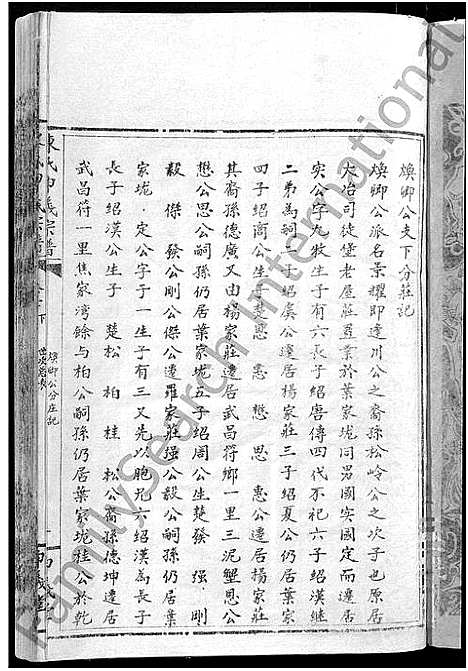 煥卿公支下分莊記
煥卿公派名景耀即達川公之裔孫松岭公之次子也原居
大冶司徒堡老屋莊置業於葉家垅同男國实國定而遷居
实公字九牧生子有六長子紹唐傳四代不祀六子紹漢継
二弟為祠二子紹虞公遷居楊家莊三子紹夏公仍居葉家
四子紹商公生子楚惠 憲 懋 思 惠公遷居楊家莊
其裔孫德廣又由楊家莊遷居武昌符鄉一里三泥壟思公
懋公思公嗣孫仍居葉家垅五子紹周公生楚發 強 剛
毅 傑 發公剛公傑公遷羅家莊强公毅公嗣孫仍居葉
家垅定公字于一生子有三又先以胞兄六紹漢為長子
長子紹漢公生子 楚松 柏 桂 松公裔孫德坤遷居
武昌符一里焦家湾餘与柏公嗣孫仍居葉家垅桂公於乾
陳氏
義宗譜
卷之下
煥卿公分庄記
FamilySearch International